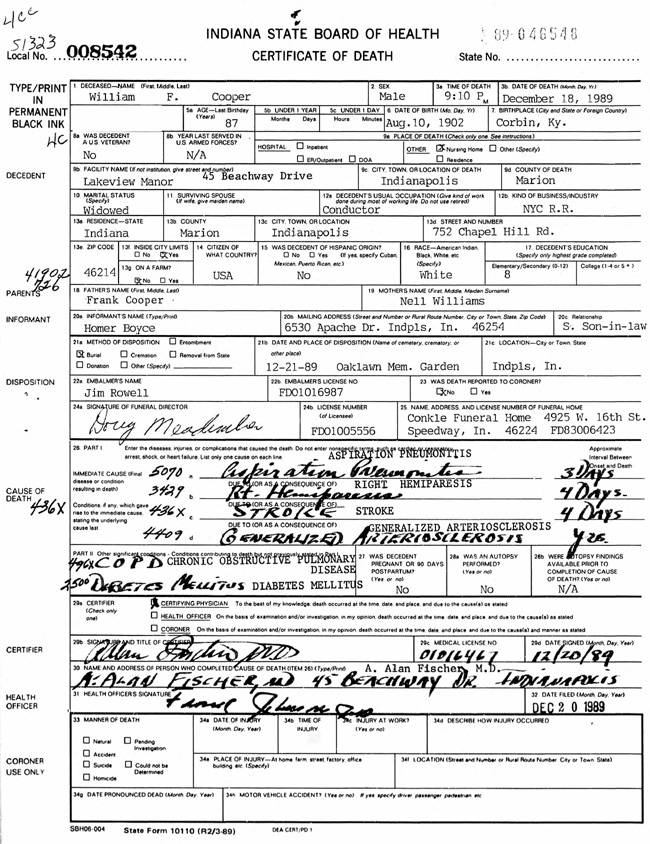 4CC
51323
INDIANA STATE BOARD OF HEALTH
89-046548
Local No. 008542
CERTIFICATE OF DEATH
State No.
TYPE/PRINT IN PERMANENT BLACK INK
1 DECEASED—NAME (First, Middle, Last)
William F. Cooper
2 SEX
Male
3a TIME OF DEATH
9:10 P M
3b DATE OF DEATH (Month, Day, Yr.)
December 18, 1989
5a AGE—Last Birthday (Years)
87
5b UNDER 1 YEAR
Months Days
5c UNDER 1 DAY
Hours Minutes
6 DATE OF BIRTH (Mo, Day, Yr)
Aug.10, 1902
7 BIRTHPLACE (City and State or Foreign Country)
Corbin, Ky.
4C
8a WAS DECEDENT A U.S. VETERAN?
No
8b YEAR LAST SERVED IN U.S. ARMED FORCES?
N/A
9a PLACE OF DEATH (Check only one. See instructions)
HOSPITAL Inpatient ER/Outpatient DOA
OTHER Nursing Home Other (Specify) Residence
DECEDENT
9b FACILITY NAME (If not institution, give street and number)
Lakeview Manor 45 Beachway Drive
9c CITY, TOWN, OR LOCATION OF DEATH
Indianapolis
9d COUNTY OF DEATH
Marion
10 MARITAL STATUS (Specify)
Widowed
11 SURVIVING SPOUSE (If wife, give maiden name)
12a DECEDENT'S USUAL OCCUPATION (Give kind of work done during most of working life. Do not use retired)
Conductor
12b KIND OF BUSINESS/INDUSTRY
NYC R.R.
13a RESIDENCE—STATE
Indiana
13b COUNTY
Marion
13c CITY, TOWN, OR LOCATION
Indianapolis
13d STREET AND NUMBER
752 Chapel Hill Rd.
13e ZIP CODE
46214
13f INSIDE CITY LIMITS
No Yes
13g ON A FARM?
No Yes
14 CITIZEN OF WHAT COUNTRY?
USA
15 WAS DECEDENT OF HISPANIC ORIGIN?
No Yes (If yes, specify Cuban, Mexican, Puerto Rican, etc.)
No
16 RACE—American Indian, Black, White, etc (Specify)
White
17 DECEDENT'S EDUCATION
(Specify only highest grade completed)
Elementary/Secondary (0-12) College (1-4 or 5+)
8
41902
726
PARENTS
18 FATHER'S NAME (First, Middle, Last)
Frank Cooper
19 MOTHER'S NAME (First, Middle, Maiden Surname)
Nell Williams
INFORMANT
20a INFORMANT'S NAME (Type/Print)
Homer Boyce
20b MAILING ADDRESS (Street and Number or Rural Route Number, City or Town, State, Zip Code)
6530 Apache Dr. Indpls, In. 46254
20c Relationship
S. Son-in-law
DISPOSITION
21a METHOD OF DISPOSITION
Entombment
Burial Cremation Removal from State
Donation Other (Specify)
21b DATE AND PLACE OF DISPOSITION (Name of cemetery, crematory, or other place)
12-21-89 Oaklawn Mem. Garden
21c LOCATION—City or Town, State
Indpls, In.
22a EMBALMER'S NAME
Jim Rowell
22b EMBALMER'S LICENSE NO
FDO1016987
23 WAS DEATH REPORTED TO CORONER?
No Yes
24a SIGNATURE OF FUNERAL DIRECTOR
Doug
24b LICENSE NUMBER (of Licensee)
FDO1005556
25 NAME, ADDRESS, AND LICENSE NUMBER OF FUNERAL HOME
Conkle Funeral Home 4925 W. 16th St.
Speedway, In. 46224 FD83006423
CAUSE OF DEATH
26 PART I Enter the diseases, injuries, or complications that caused the death. Do not enter nonspecific terms, such as cardiac or respiratory arrest, shock, or heart failure. List only one cause on each line
ASPIRATION PNEUMONITIS
Approximate Interval Between Onset and Death
IMMEDIATE CAUSE (Final disease or condition resulting in death)
5070 a. Aspiration Pneumonitis 3 Days
DUE TO (OR AS A CONSEQUENCE OF) RIGHT HEMIPARESIS
3429 b. Rt. Hemiparesis 4 Days
DUE TO (OR AS A CONSEQUENCE OF)
Conditions, if any, which gave rise to the immediate cause, stating the underlying cause last
436X
436X c. STROKE STROKE 4 Days
DUE TO (OR AS A CONSEQUENCE OF) GENERALIZED ARTERIOSCLEROSIS
4409 d. GENERALIZED ARTERIOSCLEROSIS Yrs.
PART II Other significant conditions - Conditions contributing to death but not previously stated in Part I
496X COPD CHRONIC OBSTRUCTIVE PULMONARY DISEASE
2500 DIABETES MELLITUS DIABETES MELLITUS
27 WAS DECEDENT PREGNANT OR 90 DAYS POSTPARTUM? (Yes or no)
No
28a WAS AN AUTOPSY PERFORMED? (Yes or no)
No
28b WERE AUTOPSY FINDINGS AVAILABLE PRIOR TO COMPLETION OF CAUSE OF DEATH? (Yes or no)
N/A
CERTIFIER
29a CERTIFIER (Check only one)
CERTIFYING PHYSICIAN To the best of my knowledge, death occurred at the time, date, and place, and due to the cause(s) as stated
HEALTH OFFICER On the basis of examination and/or investigation, in my opinion, death occurred at the time, date, and place, and due to the cause(s) as stated
CORONER On the basis of examination and/or investigation, in my opinion, death occurred at the time, date, and place, and due to the cause(s) and manner as stated
29b SIGNATURE AND TITLE OF CERTIFIER
29c MEDICAL LICENSE NO
01016467
29d DATE SIGNED (Month, Day, Year)
12/20/89
30 NAME AND ADDRESS OF PERSON WHO COMPLETED CAUSE OF DEATH (ITEM 26) (Type/Print)
A. Alan Fischer, M.D.
A. ALAN FISCHER, MD 45 BEACHWAY DR. INDIANAPOLIS
HEALTH OFFICER
31 HEALTH OFFICER'S SIGNATURE
32 DATE FILED (Month, Day, Year)
DEC 20 1989
CORONER USE ONLY
33 MANNER OF DEATH
Natural Pending Investigation
Accident
Suicide Could not be Determined
Homicide
34a DATE OF INJURY (Month, Day, Year)
34b TIME OF INJURY
34c INJURY AT WORK? (Yes or no)
34d DESCRIBE HOW INJURY OCCURRED
34e PLACE OF INJURY—At home, farm, street, factory, office building, etc (Specify)
34f LOCATION (Street and Number or Rural Route Number, City or Town, State)
34g DATE PRONOUNCED DEAD (Month, Day, Year)
34h MOTOR VEHICLE ACCIDENT? (Yes or no) If yes, specify driver, passenger, pedestrian, etc
SBH06-004 State Form 10110 (R2/3-89) DEA CERT/PD 1